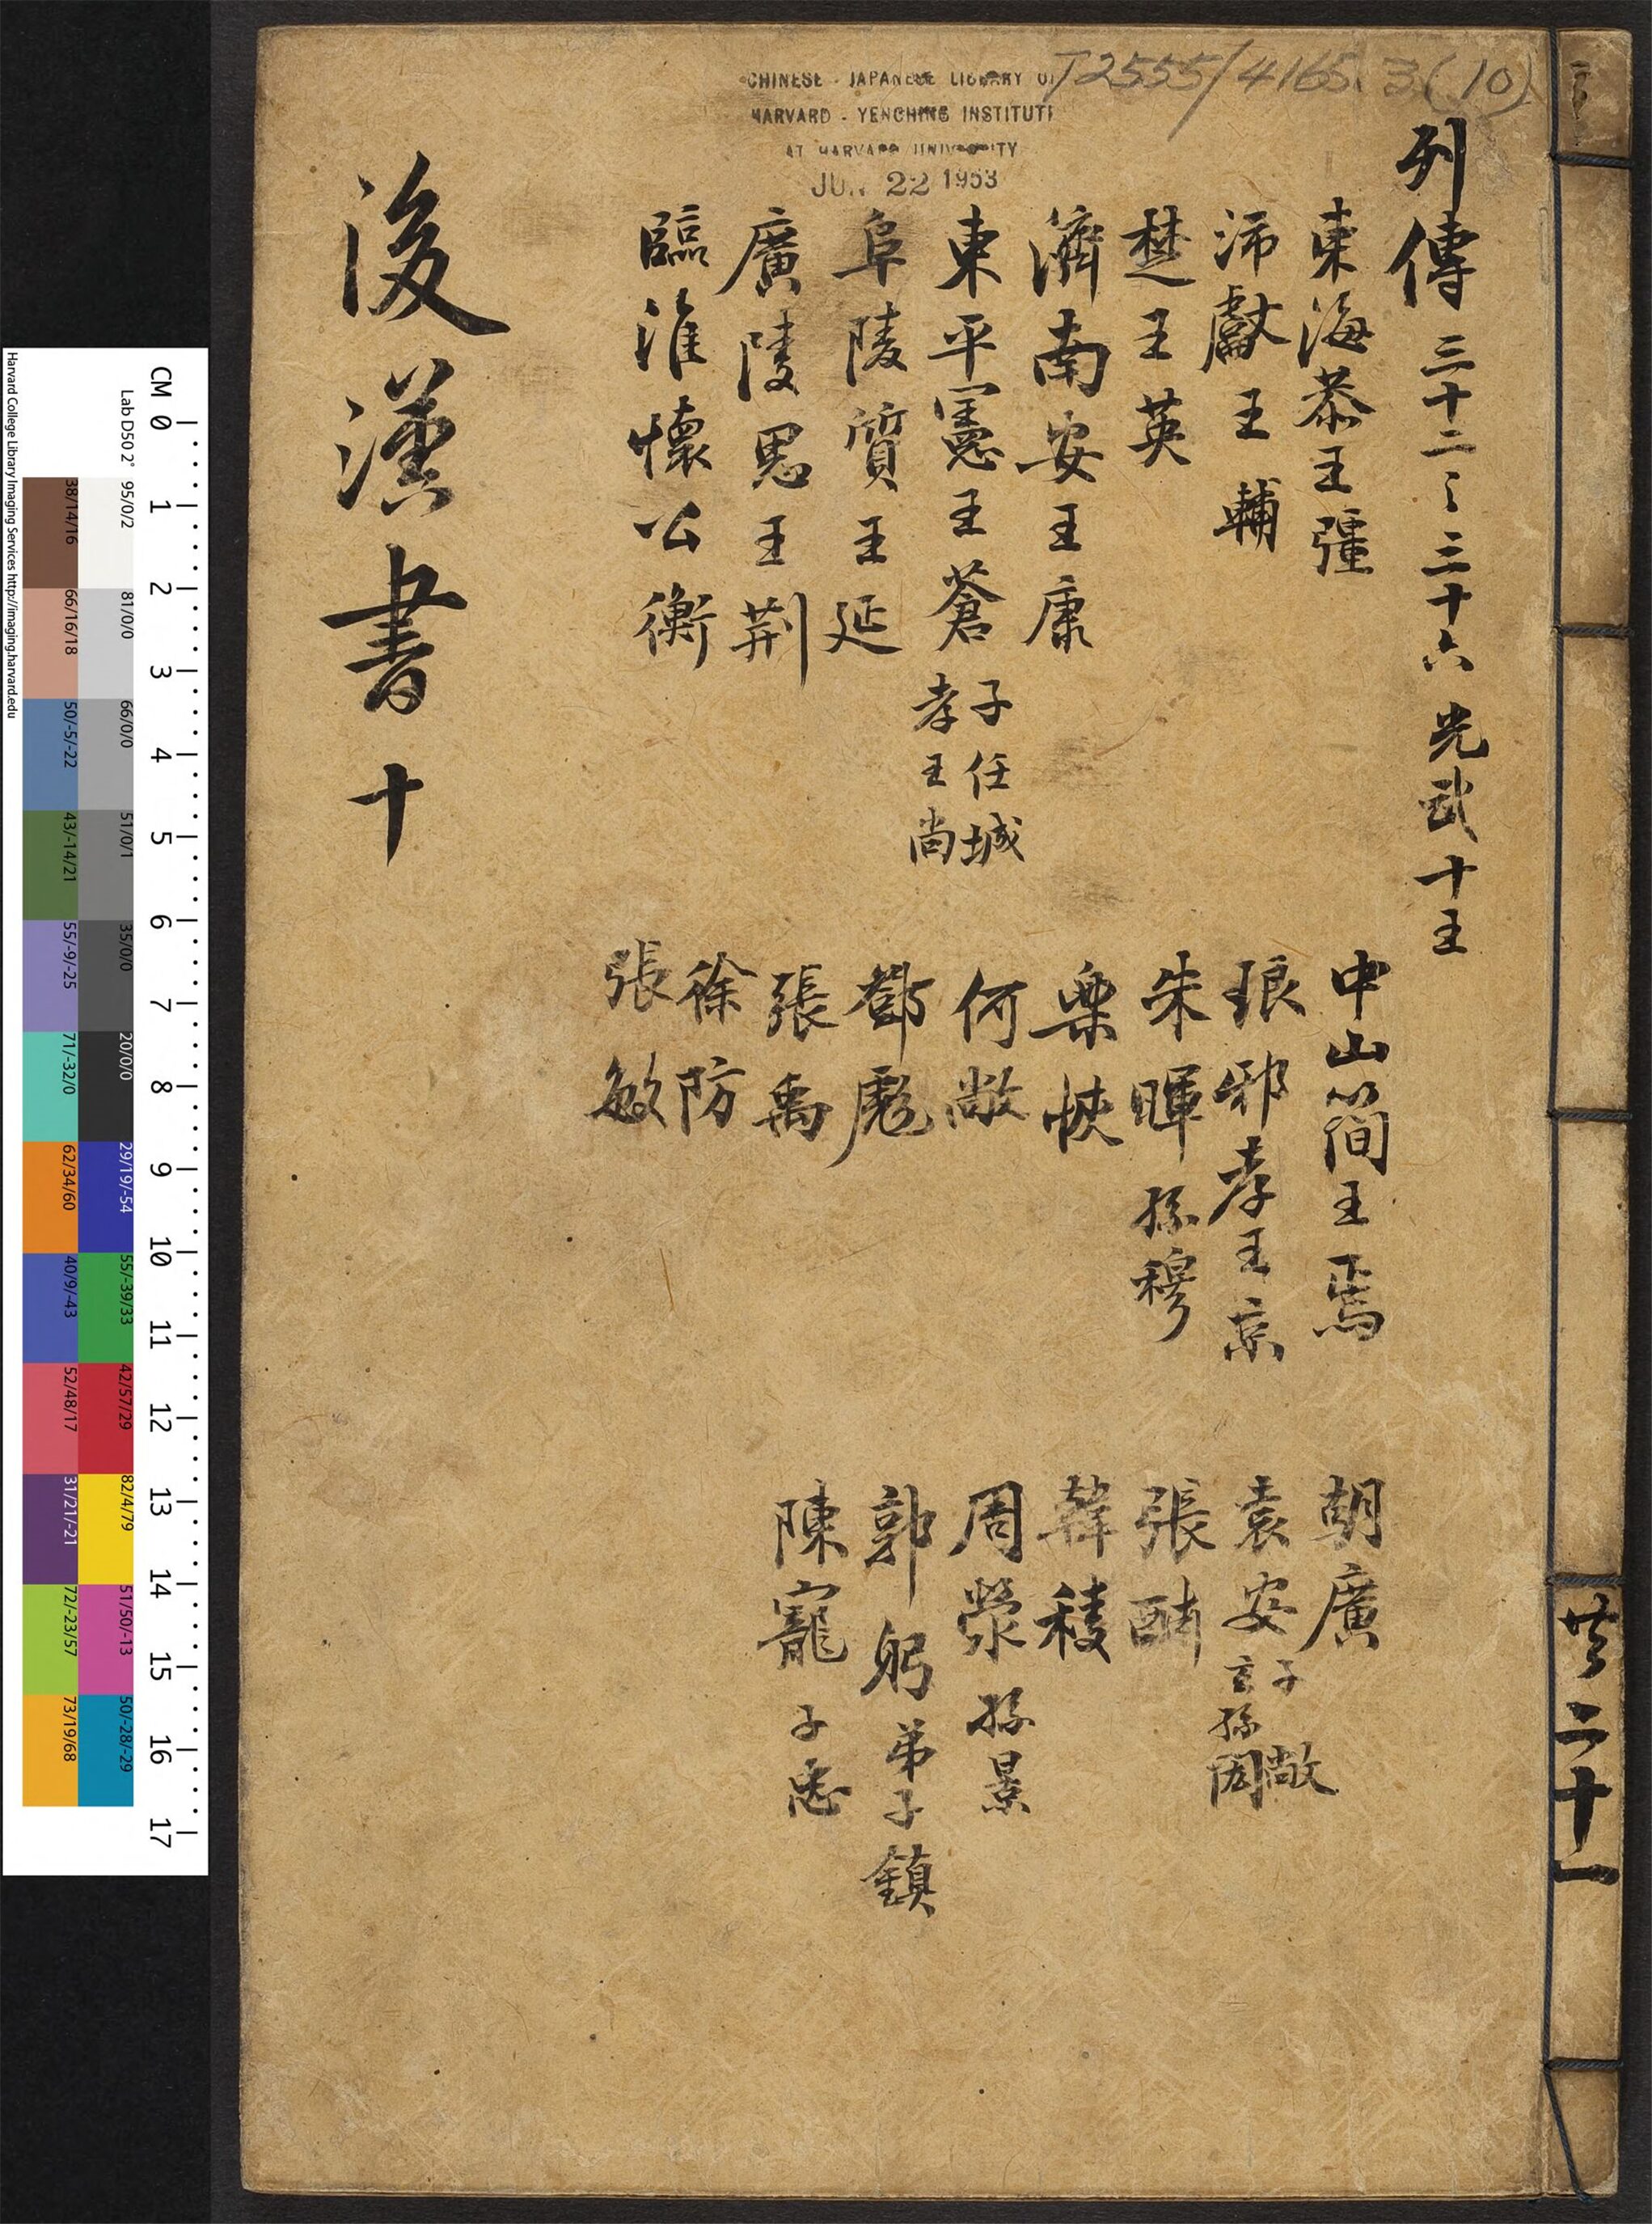 CHINESE - JAPANESE LIBRARY OF
HARVARD - YENCHING INSTITUTE
AT HARVARD UNIVERSITY
JUN 22 1953
T2555/4165.3(10)
列傳 三十二之三十六 光武十王
東海恭王彊
沛獻王輔
楚王英
濟南安王康
東平憲王蒼 子任城孝王尚
阜陵質王延
廣陵思王荆
臨淮懷公衡
中山簡王焉
琅邪孝王京
朱暉 孫穆
樂恢
何敞
鄧彪
張禹
徐防
張敏
胡廣
袁安 子敞 玄孫閎
張酺
韓稜
周榮 孫景
郭躬 弟子鎮
陳寵 子忠
後漢書 十
共二十一
CM 0 1 2 3 4 5 6 7 8 9 10 11 12 13 14 15 16 17
Lab D50 2°
95/0/2
81/0/0
66/0/0
51/0/1
35/0/0
20/0/0
29/19/-54
55/-39/33
42/57/29
82/4/79
51/50/-13
50/-28/-29
38/14/16
66/16/18
50/-5/-22
43/-14/21
55/-9/-25
71/-32/0
62/34/60
40/9/-43
52/48/17
31/21/-21
72/-23/57
73/19/68
Harvard College Library Imaging Services http://imaging.harvard.edu